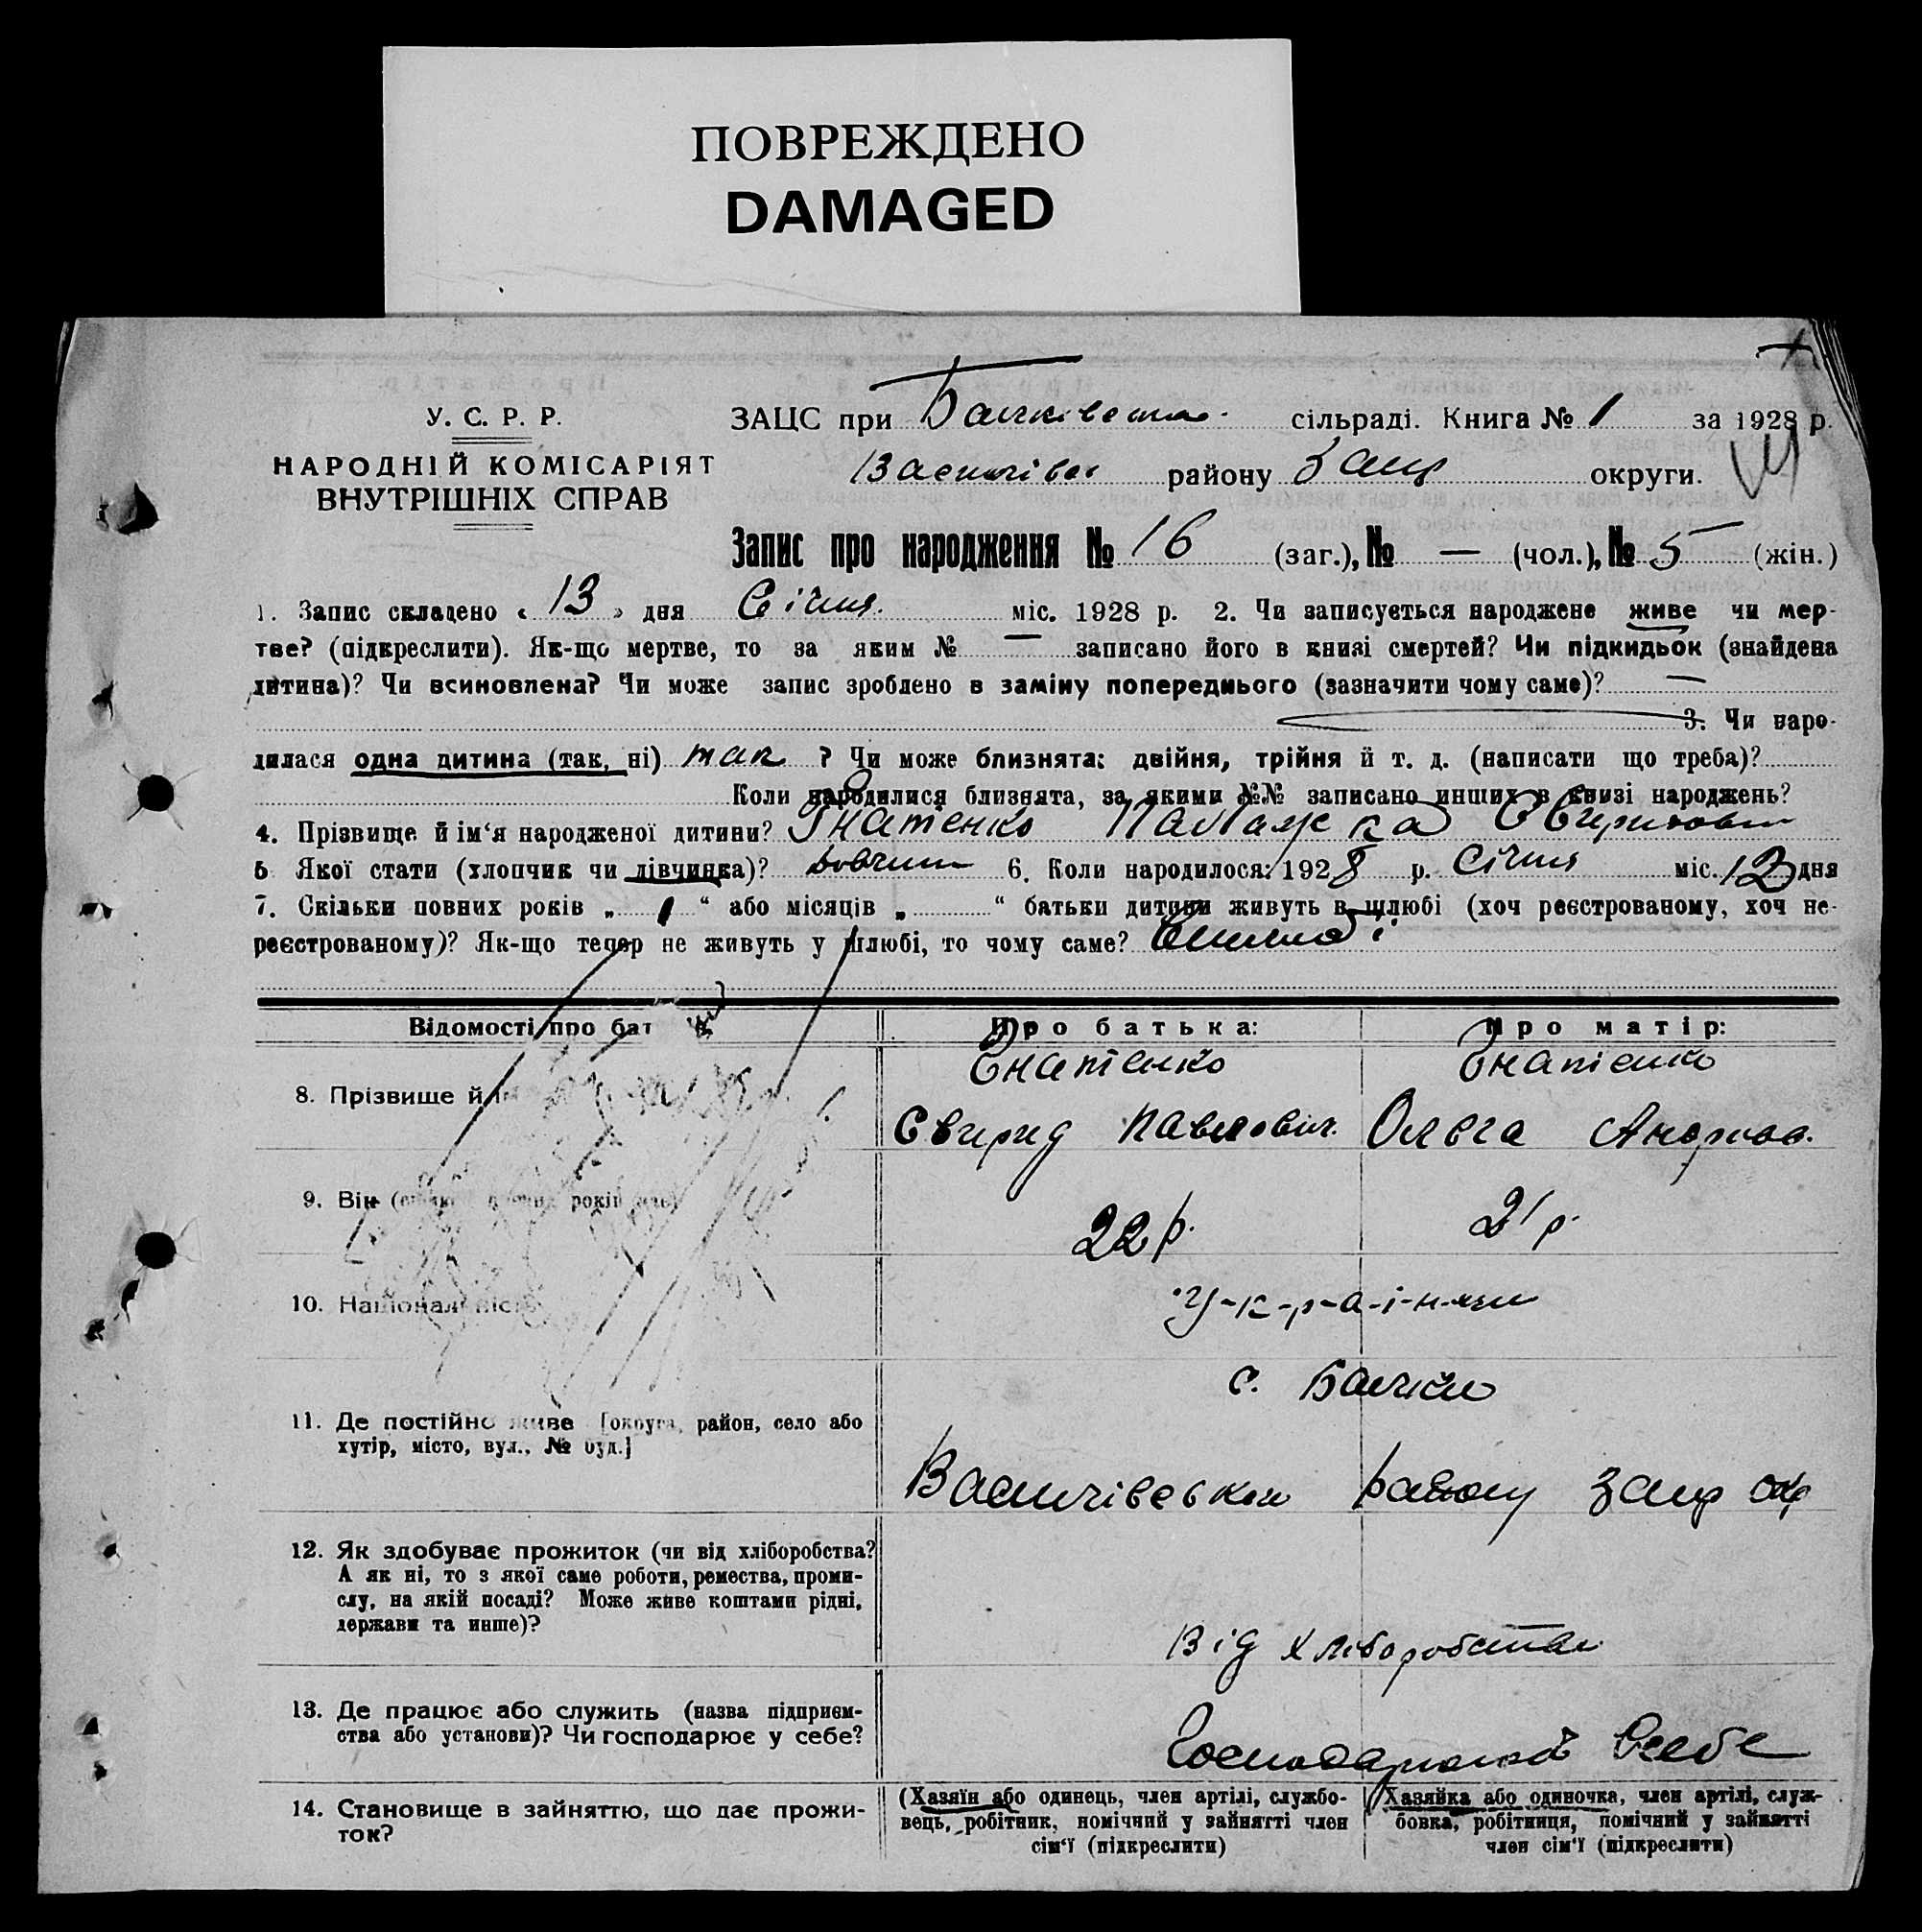 ПОВРЕЖДЕНО
DAMAGED
У. С. Р. Р.
НАРОДНІЙ КОМІСАРІЯТ
ВНУТРІШНІХ СПРАВ
ЗАЦС при сільраді. Книга № 1 за 1928 р.
району Запр округи.
Запис про народження № 16 (заг.), № — (чол.), № 5 (жін.)
1. Запис складено « 13 » дня Січня міс. 1928 р. 2. Чи записується народжене живе чи мер-
тве? (підкреслити). Як-що мертве, то за яким № — записано його в книзі смертей? Чи підкидьок (знайдена
дитина)? Чи всиновлена? Чи може запис зроблено в заміну попереднього (зазначити чому саме)? —
3. Чи наро-
дилася одна дитина (так, ні) так ? Чи може близнята: двійня, трійня й т. д. (написати що треба)?
Коли народилися близнята, за якими №№ записано инших в книзі народжень?
4. Прізвище й ім‘я народженої дитини? Гнатенко Палажка
5 Якої стати (хлопчик чи дівчинка)? 6. Коли народилося: 1928 р. Січня міс. 12 дня
7. Скільки повних років „ 1 “ або місяців „ “ батьки дитини живуть в шлюбі (хоч реєстрованому, хоч не-
реєстрованому)? Як-що тепер не живуть у шлюбі, то чому саме?
Відомості про бат
Про батька:
Про матір:
8. Прізвище й
Гнатенко
Гнатенко
Свирид Павлович.
Ольга Андріїв.
9. Вік
22 р.
21 р.
10. Національність
У-к-р-а-ї-н-ці
11. Де постійно живе [округа, район, село або
хутір, місто, вул., № буд.]
с. Балки
Василівського району Запр окр
12. Як здобуває прожиток (чи від хліборобства?
А як ні, то з якої саме роботи, ремества, проми-
слу, на якій посаді? Може живе коштами рідні,
держави та инше)?
Від хліборобства
13. Де працює або служить (назва підприєм-
ства або установи)? Чи господарює у себе?
в себе
14. Становище в зайняттю, що дає прожи-
ток?
(Хазяїн або одинець, член артілі, службо-
вець, робітник, помічний у зайнятті член
сім‘ї (підкреслити)
(Хазяйка або одиночка, член артілі, служ-
бовка, робітниця, помічний у зайнятті
член сім‘ї (підкреслити)